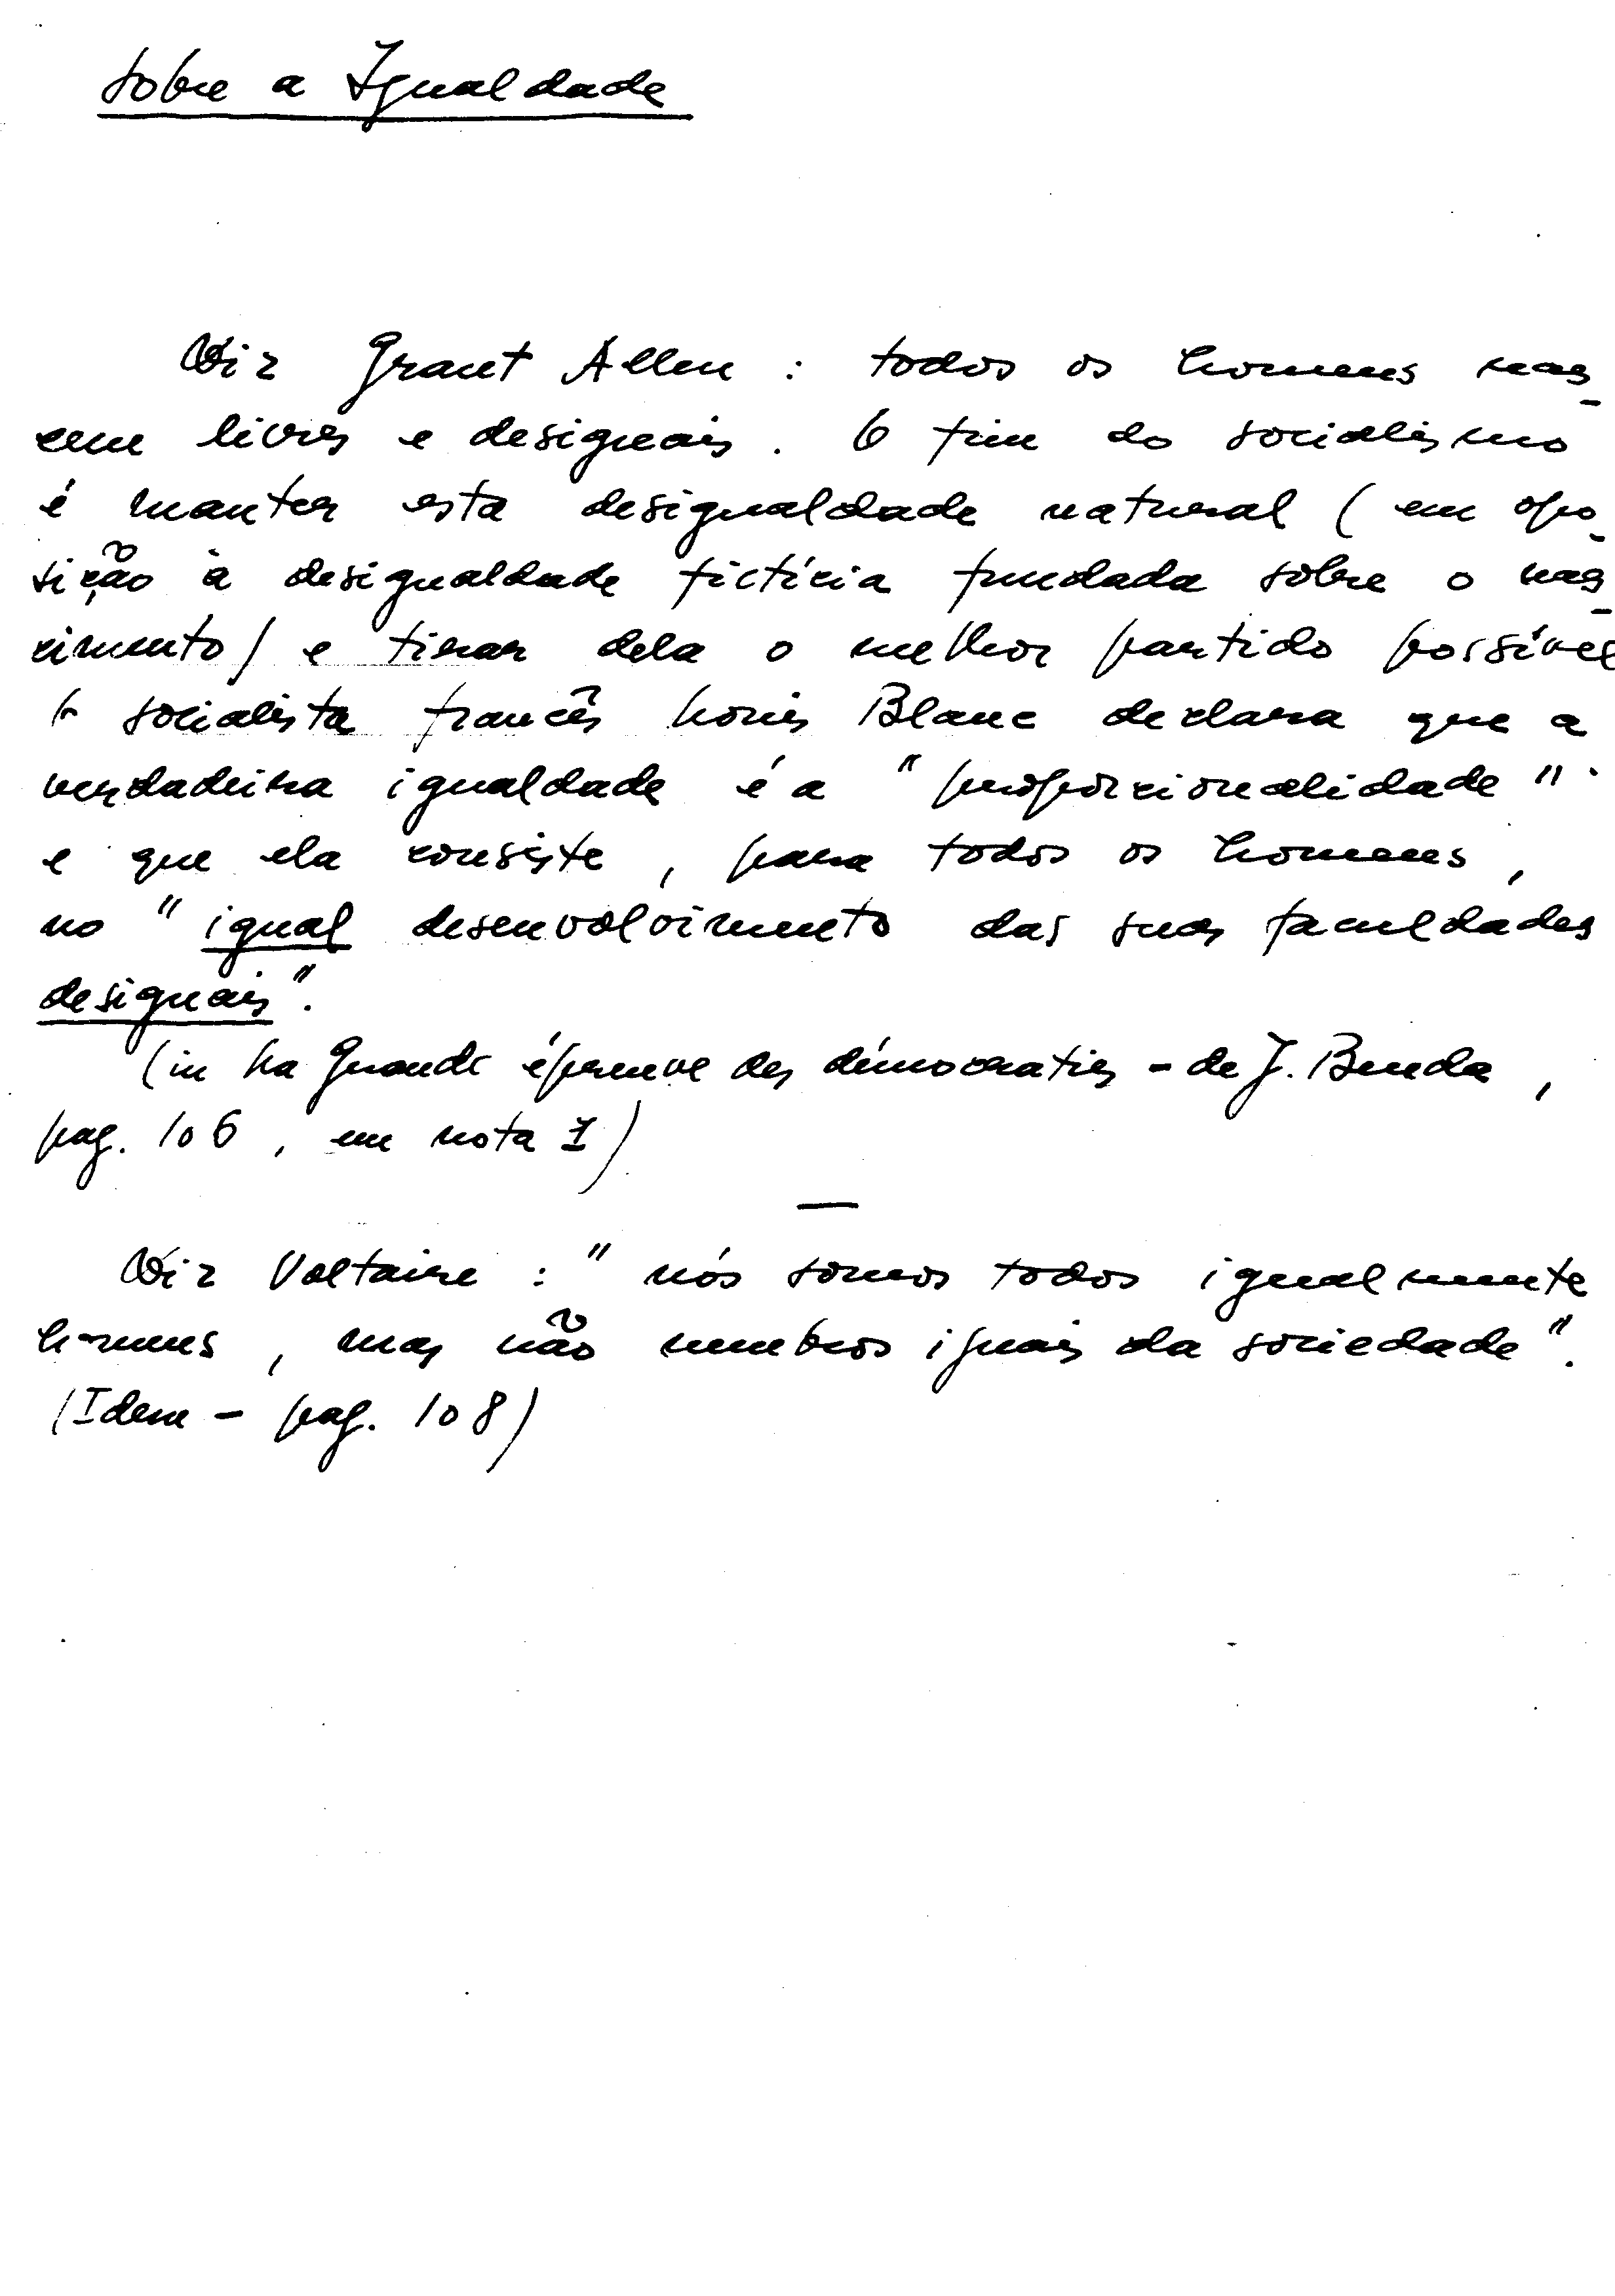 Sobre a Igualdade
Diz Grant Allen : todos os homens nas-
cem livres e desiguais. O fim do socialismo
é manter esta desigualdade natural (em opo-
sição à desigualdade fictícia fundada sobre o nas-
cimento) e tirar dela o melhor partido possível
O socialista francês Louis Blanc declara que a
verdadeira igualdade é a "proporcionalidade"
e que ela consiste, para todos os homens,
no "igual desenvolvimento das suas faculdades
desiguais".
(in La Grande épreuve des démocraties - de J. Benda,
pag. 106, em nota 1)
—
Diz Voltaire : "nós somos todos igualmente
homens, mas não membros iguais da sociedade".
(Idem - pag. 108)